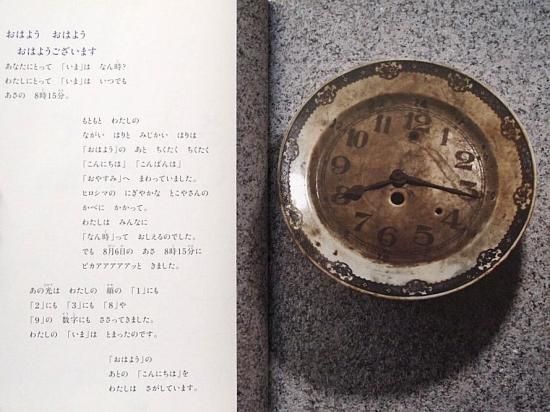 おはよう　おはよう
おはようございます
あなたにとって　「いま」は　なん時?
わたしにとって　「いま」は　いつでも
あさの　8時15分。
もともと　わたしの
ながい　はりと　みじかい　はりは
「おはよう」の　あと　ちくたく　ちくたく
「こんにちは」　「こんばんは」
「おやすみ」へ　まわっていました。
ヒロシマの　にぎやかな　とこやさんの
かべに　かかって。
わたしは　みんなに
「なん時」って　おしえるのでした。
でも　8月6日の　あさ　8時15分に
ピカアアアアアッと　きました。
あの光は　わたしの　顔の　「1」にも
「2」にも　「3」にも　「8」や
「9」の　数字にも　ささってきました。
わたしの　「いま」は　とまったのです。
「おはよう」の
あとの　「こんにちは」を
わたしは　さがしています。
12
1
2
3
4
5
6
7
8
9
10
11